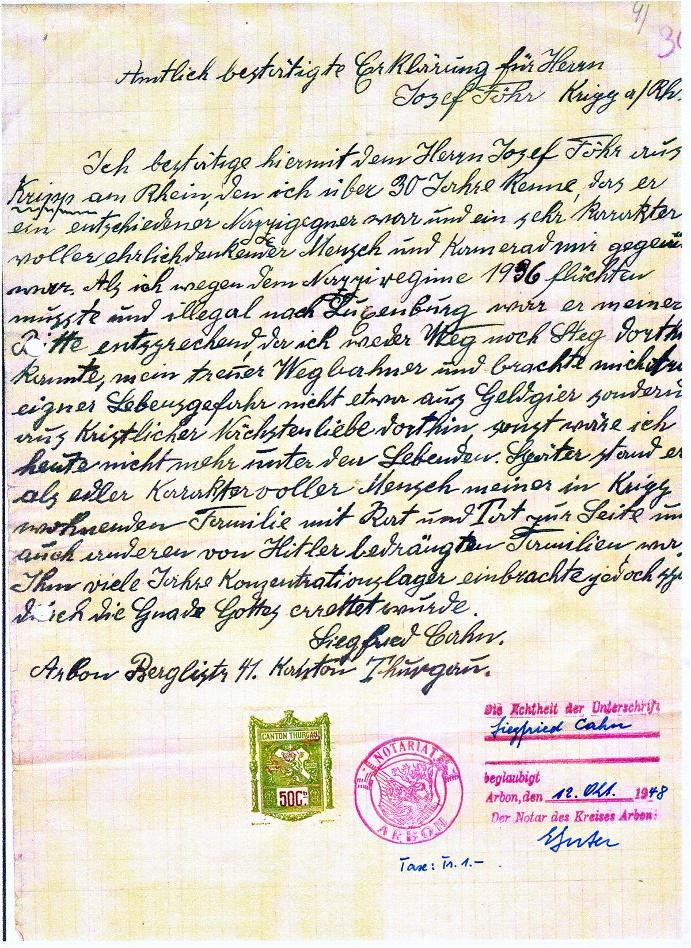 4/
Amtlich bestätigte Erklärung für Herrn
Josef Föhr Kripp a/Rh.
Ich bestätige hiermit dem Herrn Josef Föhr aus
Kripp am Rhein, den ich über 30 Jahre kenne, das er
ein entschiedener Nazzigegner war und ein sehr karakter
voller ehrlichdenkender Mensch und Kamerad mir gegen
war. Als ich wegen dem Nazziregime 1936 flüchten
musste und illegal nach Luxenburg war er meiner
Bitte entsprechend, da ich weder Weg noch Steg dorth
kannte, mein treuer Wegbahner und brachte mich
eigner Lebensgefahr nicht etwa aus Geldgier sondern
aus Kristlicher Nächstenliebe dorthin sonst wäre ich
heute nicht mehr unter den Lebenden. Später stand er
als edler Karaktervoller Mensch meiner in Kripp
wohnenden Familie mit Rat und Tat zur Seite un
auch anderen von Hitler bedrängten Familien wa
Ihm viele Jahre Konzentrationslager einbrachte jedoch
durch die Gnade Gottes errettet wurde.
Siegfried Cahn.
Arbon Berglistr 41. Kanton Thurgau.
CANTON THURGAU
50 Cts
NOTARIAT
ARBON
Die Echtheit der Unterschrift
Siegfried Cahn
beglaubigt
Arbon, den 12. Okt. 1948
Der Notar des Kreises Arbon:
Taxe: Fr. 1.–